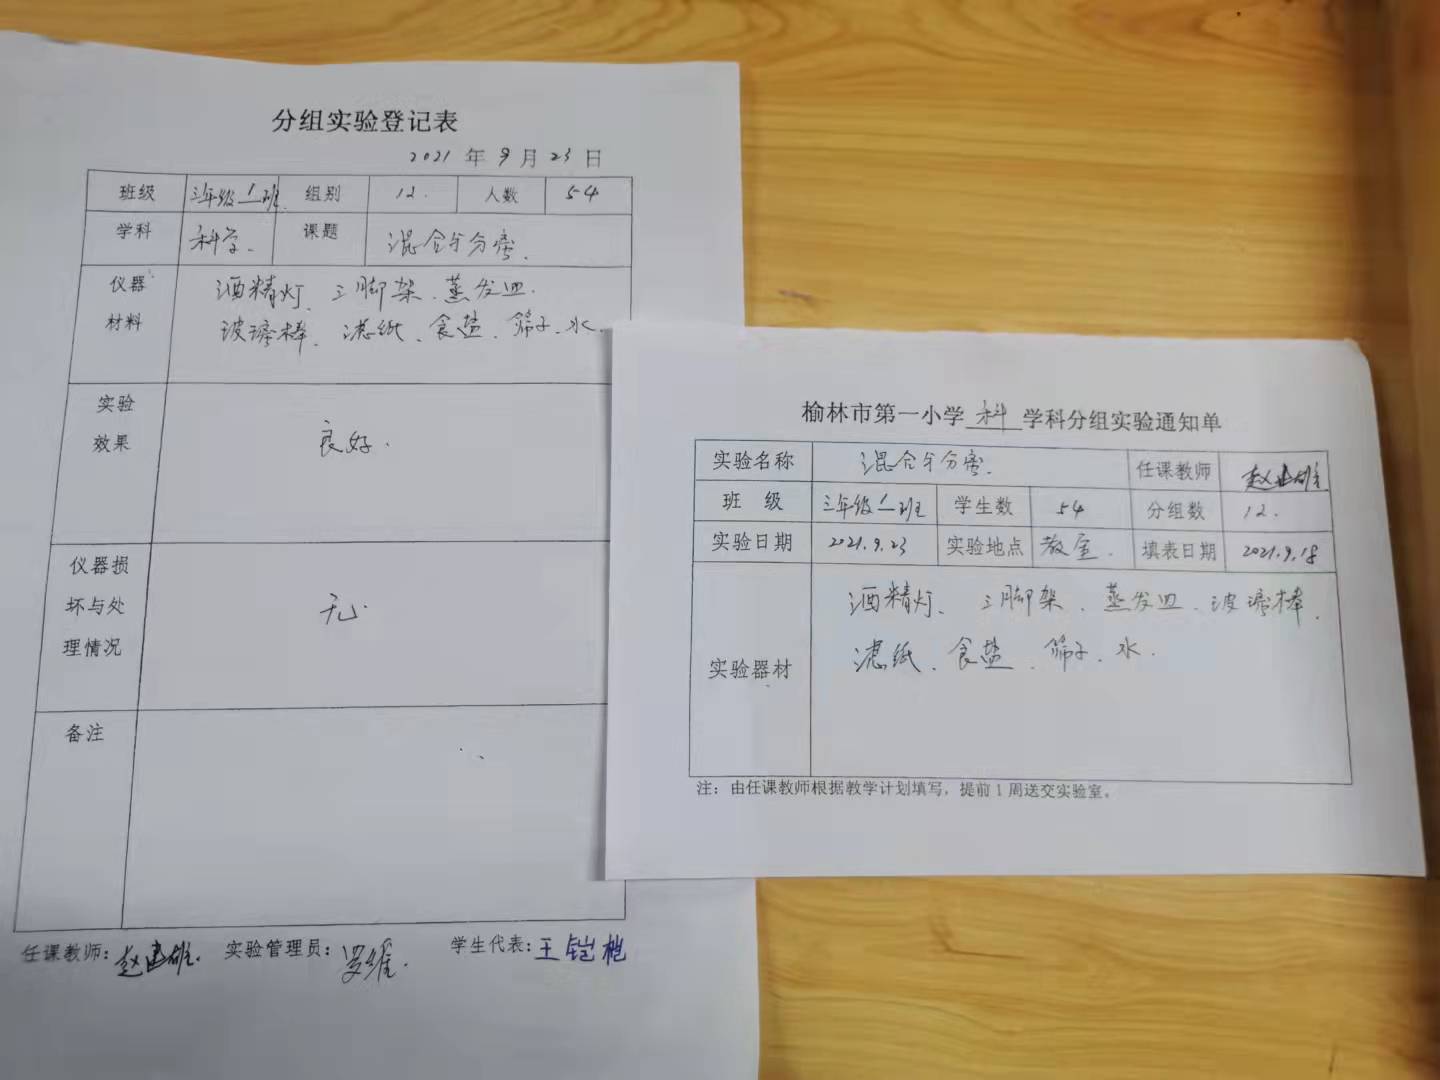 分组实验登记表
2021 年 9 月 23 日
班级 三年级1班 组别 12. 人数 54
学科 科学. 课题 混合与分离.
仪器 酒精灯、三脚架、蒸发皿.
材料 玻璃棒、滤纸、食盐、筛子、水.
实验
效果 良好.
仪器损
坏与处 无
理情况
备注
任课教师: 赵建雄. 实验管理员: 罗维. 学生代表: 王铠桤
榆林市第一小学 科 学科分组实验通知单
实验名称 混合与分离. 任课教师 赵建雄
班 级 三年级1班 学生数 54 分组数 12.
实验日期 2021.9.23 实验地点 教室. 填表日期 2021.9.18
酒精灯、三脚架、蒸发皿、玻璃棒.
实验器材 滤纸、食盐、筛子、水.
注：由任课教师根据教学计划填写，提前 1 周送交实验室。